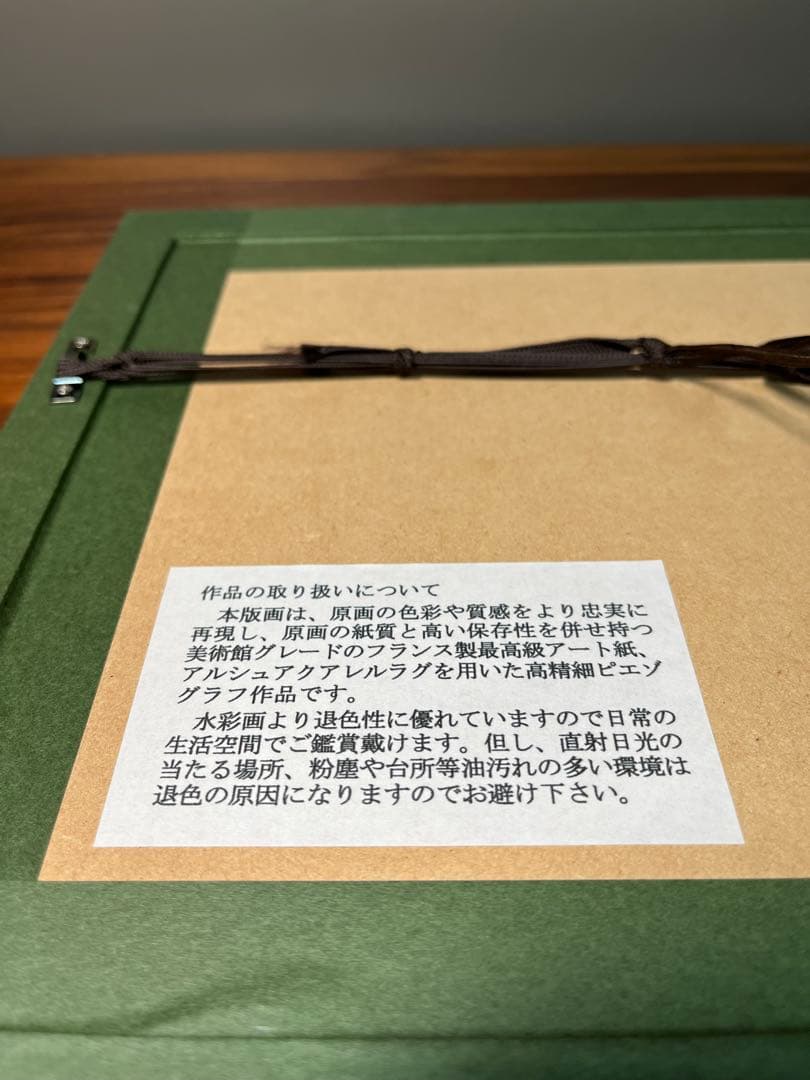 作品の取り扱いについて
本版画は、原画の色彩や質感をより忠実に
再現し、原画の紙質と高い保存性を併せ持つ
美術館グレードのフランス製最高級アート紙、
アルシュアクアレルラグを用いた高精細ピエゾ
グラフ作品です。
水彩画より退色性に優れていますので日常の
生活空間でご鑑賞戴けます。但し、直射日光の
当たる場所、粉塵や台所等油汚れの多い環境は
退色の原因になりますのでお避け下さい。